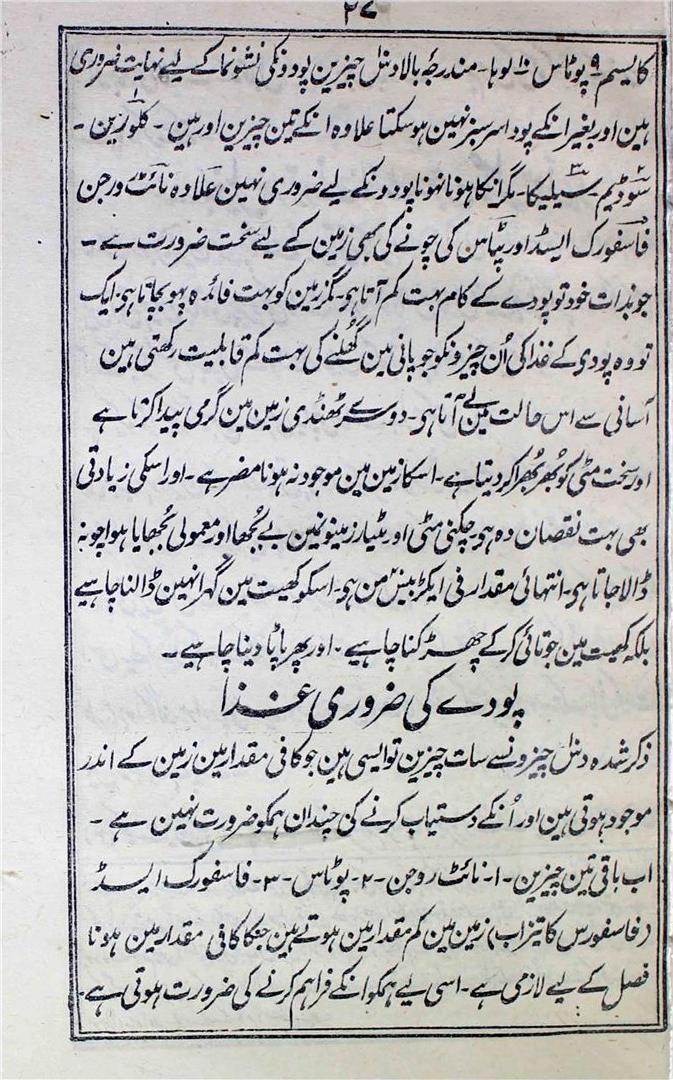 ۲۷
کالیسم ۹ پوٹاس ۱۰ لوہا۔ مندرجۂ بالا دس چیزین پودونکی نشو نما کے لیے نہایت ضروری
ہین اور بغیر انکے پودا سرسبز نہین ہو سکتا علاوہ انکے تین چیزین اور ہین ۔ ۱ کلورین ۔
۲ سوڈیم ۔ ۳ سیلیکا ۔ مگر انکا ہونا نہونا پودونکے لیے ضروری نہین علاوہ نائٹ ورجن
فاسفورک ایسڈ اور پٹاس کی چونے کی بھی زمین کے لیے سخت ضرورت ہے ۔
جو بذات خود تو پودے کے کام بہت کم آتا ہی ۔ مگر زمین کو بہت فائدہ پہونچاتا ہی ۔ ایک
تو وہ پودی کے غذا کی اُن چیزونکو جو پانی مین گھُلنے کی بہت کم قابلیت رکھتی ہین
آسانی سے اس حالت مین لے آتا ہی ۔ دوسرے ٹھنڈی زمین مین گرمی پیدا کرتا ہے
اور سخت مٹی کو بھُر بھُرا کر دیتا ہے ۔ اسکا زمین مین موجود نہ ہونا مضر ہے ۔ اور اسکی زیادتی
بھی بہت نقصان دہ ہی ۔ چکنی مٹی اور مٹیار زمینونمین بے بُجھا اور معمولی بُجھایا ہوا چونہ
ڈالا جاتا ہی ۔ انتہائی مقدار فی ایکڑ بیس من ہی ۔ اسکو کھیت مین گہرا نہین ڈالنا چاہیے
بلکہ کھیت مین جوتائی کر کے چھڑکنا چاہیے ۔ اور پھر پاٹا دینا چاہیے ۔
پودے کی ضروری غذا
ذکر شدہ دس چیزونسے سات چیزین تو ایسی ہین جو کافی مقدار مین زمین کے اندر
موجود ہوتی ہین اور اُنکے دستیاب کرنے کی چندان ہمکو ضرورت نہین ہے ۔
اب باقی تین چیزین ۔ ۱ ۔ نائٹ روجن ۔ ۲ ۔ پوٹاس ۔ ۳ ۔ فاسفورک ایسڈ
(فاسفورس کا تیزاب) زمین مین کم مقدار مین ہوتے ہین جنکا کافی مقدار مین ہونا
فصل کے لیے لازمی ہے ۔ اسی لیے ہمکو انکے فراہم کرنے کی ضرورت ہوتی ہے ۔